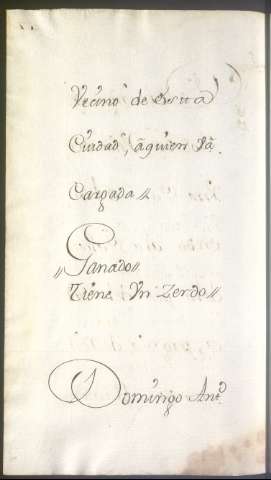 Vecino de esta
Ciudad, aquien Va
Cargada //
// Ganado //
Tiene Un Zerdo //
Domingo Antº